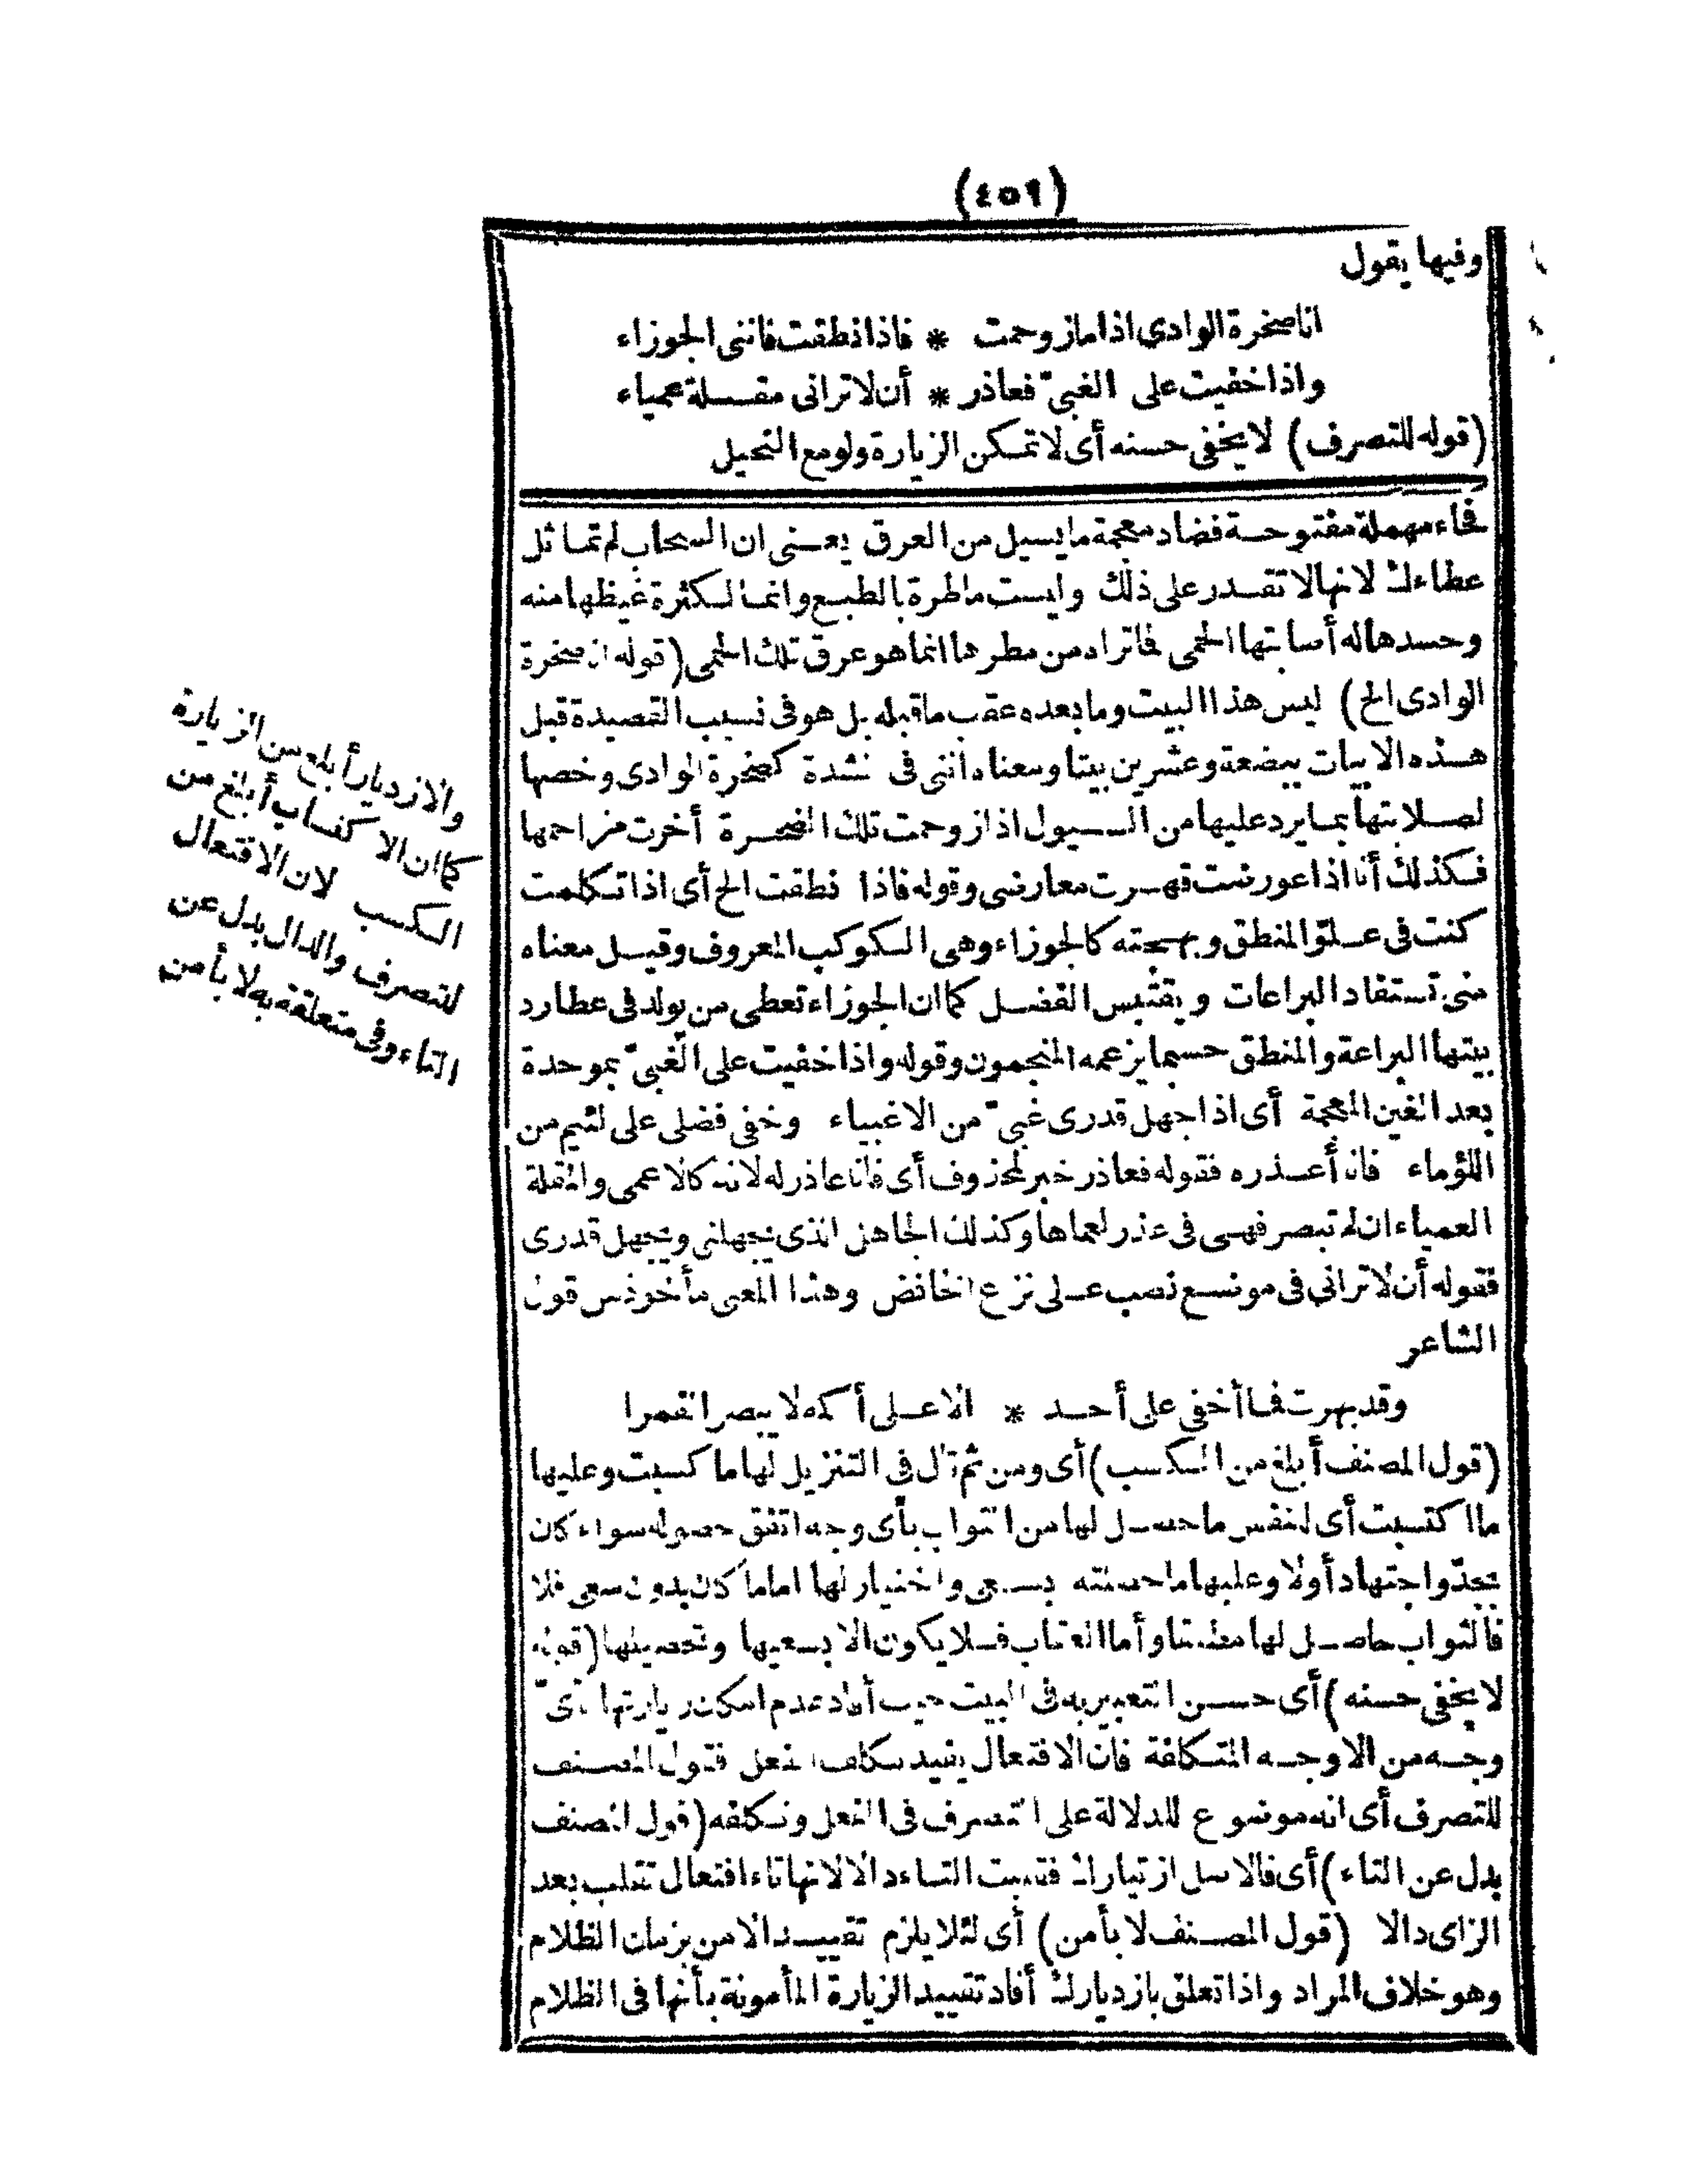 (٤٥٦)
وفيها يقول
انا صخرة الوادى اذا ما زوحمت * فاذا نطقت فاننى الجوزاء
واذا خفيت على الغبىّ فعاذر * أن لا ترانى مقسلة عمياء
(قوله للتصرف) لا يخفى حسنه أى لا تمكن الزيارة ولو مع التحيل
فحاء مهملة مفتوحة فضاد معجمة ما يسيل من العرق يعنى ان السحاب لم تماثل
عطاءك لانها لا تقدر على ذلك وليست ماطرة بالطبع وانما لكثرة غيظها منه
وحسدها له أصابتها الحمى فما تراه من مطرها انما هو عرق تلك الحمى (قوله انا صخرة
الوادى الخ) ليس هذا البيت وما بعده عقب ما قبله بل هو فى نسيب القصيدة قبل
هذه الابيات ببضعة وعشرين بيتا ومعناه اننى فى شدة كصخرة الوادى وخصها
لصلابتها بما يرد عليها من السيول اذا زوحمت تلك الصخرة أخرت مزاحمها
فكذلك أنا اذا عورضت قهرت معارضى وقوله فاذا نطقت الخ أى اذا تكلمت
كنت فى علوّ المنطق وبهجته كالجوزاء وهى الكوكب المعروف وقيل معناه
منى تستفاد البراعات ويقتبس الفضل كما ان الجوزاء تعطى من يولد فى عطارد
بيتها البراعة والمنطق حسبما يزعمه المنجمون وقوله واذا خفيت على الغبىّ بموحدة
بعد الغين المعجمة أى اذا جهل قدرى غبىّ من الاغبياء وخفى فضلى على لئيم من
اللؤماء فانا أعذره فقوله فعاذر خبر لمحذوف أى فانا عاذر له لانه كالاعمى والمقلة
العمياء ان لم تبصر فهى فى عذر لعماها وكذلك الجاهل الذى يجهلنى ويجهل قدرى
فقوله أن لا ترانى فى موضع نصب على نزع الخافض وهذا المعنى مأخوذ من قول
الشاعر
وقد بهرت فما أخفى على أحد * الا على أكمه لا يبصر القمرا
(قول المصنف أبلغ من الكسب) أى ومن ثم قال فى التنزيل لها ما كسبت وعليها
ما اكتسبت أى لنفس ما حصل لها من الثواب بأى وجه اتفق حصوله سواء كان
بجدّ واجتهاد أولا وعليها ما حصلته بسعى واختيار لها اما ما كان بدون سعى فلا
فالثواب حاصل لها مطلقا وأما العقاب فلا يكون الا بسعيها وتحصيلها (قوله
لا يخفى حسنه) أى حسن التعبير به فى البيت حيث أفاد عدم امكان زيارتها بأىّ
وجه من الاوجه المتكلفة فان الافتعال يفيد تكلف الفعل فقول المصنف
للتصرف أى انه موضوع للدلالة على التصرف فى الفعل وتكلفه (قول المصنف
بدل عن التاء) أى فالاصل ازتيارك فقلبت التاء دالا لانها تاء افتعال تقلب بعد
الزاى دالا (قول المصنف لا بأمن) أى لئلا يلزم تقييد الامن بزمان الظلام
وهو خلاف المراد واذا تعلق بازديارك أفاد تقييد الزيارة المأمونة بأنها فى الظلام
والازديار أبلغ من الزيارة
كما ان الاكتساب أبلغ من
الكسب لان الافتعال
للتصرف والدال بدل عن
التاء وفى متعلقة به لا بأمن